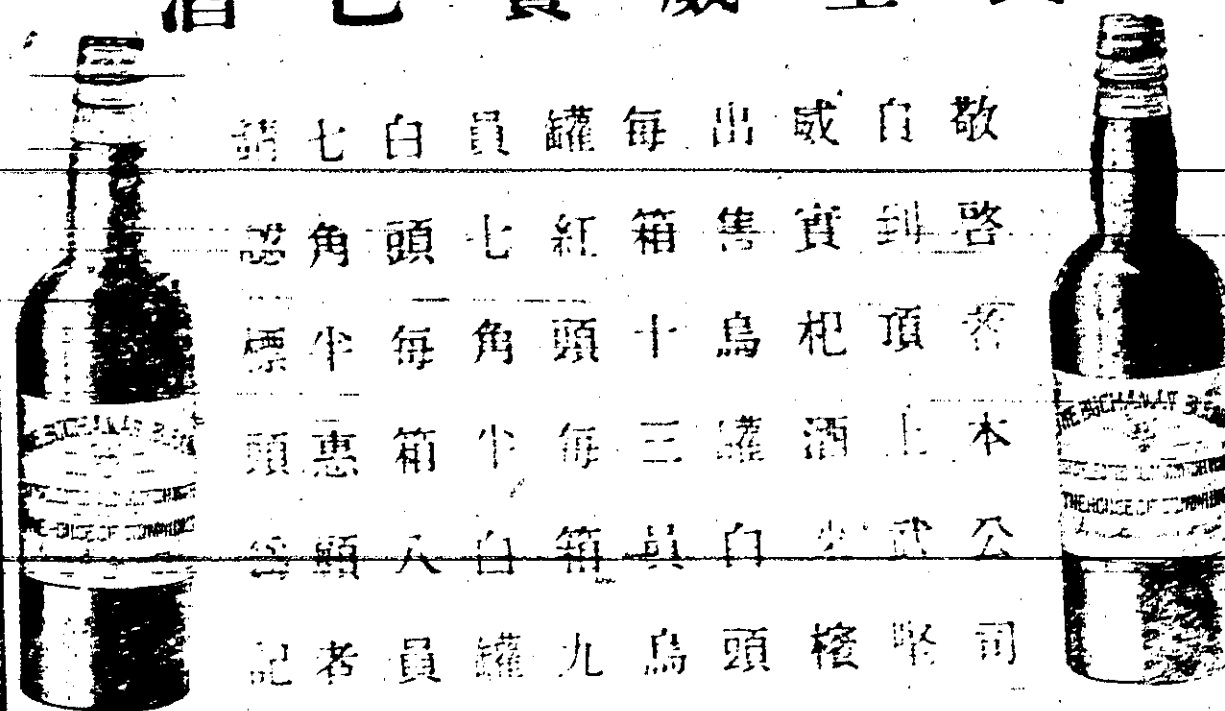 威實乜酒
敬啓者本公司
自到頂上武堅
威實杞酒棧
出售烏罐白頭
每箱十三員烏
罐紅頭每箱九
員七角半白罐
白頭每箱八員
七角半惠顧者
請認標頭爲記
THE BUCHANAN BLEND
THE HOUSE OF COMMONS
THE BUCHANAN BLEND
THE HOUSE OF COMMONS